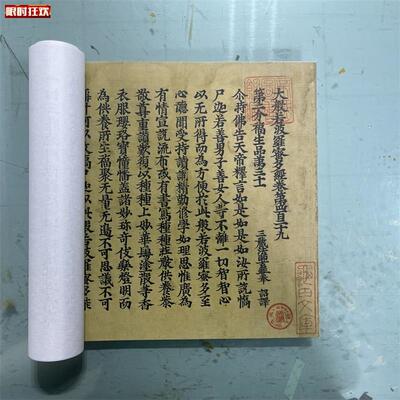 限时狂欢
大般若波羅蜜多經卷第四百二十九
第二分福生品第三十一
三藏法師玄奘奉 詔譯
尒時佛告天帝釋言如是如是如汝所說憍
尸迦若善男子善女人等不離一切智智心
以無所得而為方便於此般若波羅蜜多至
心聽聞受持讀誦精勤修學如理思惟廣為
有情宣說流布或有書寫種種莊嚴供養恭
敬尊重讚歎復以種種上妙華鬘塗散等香
衣服瓔珞寶幢幡蓋諸妙珍奇伎樂燈明而
為供養所生福聚無量無邊不可思議不可